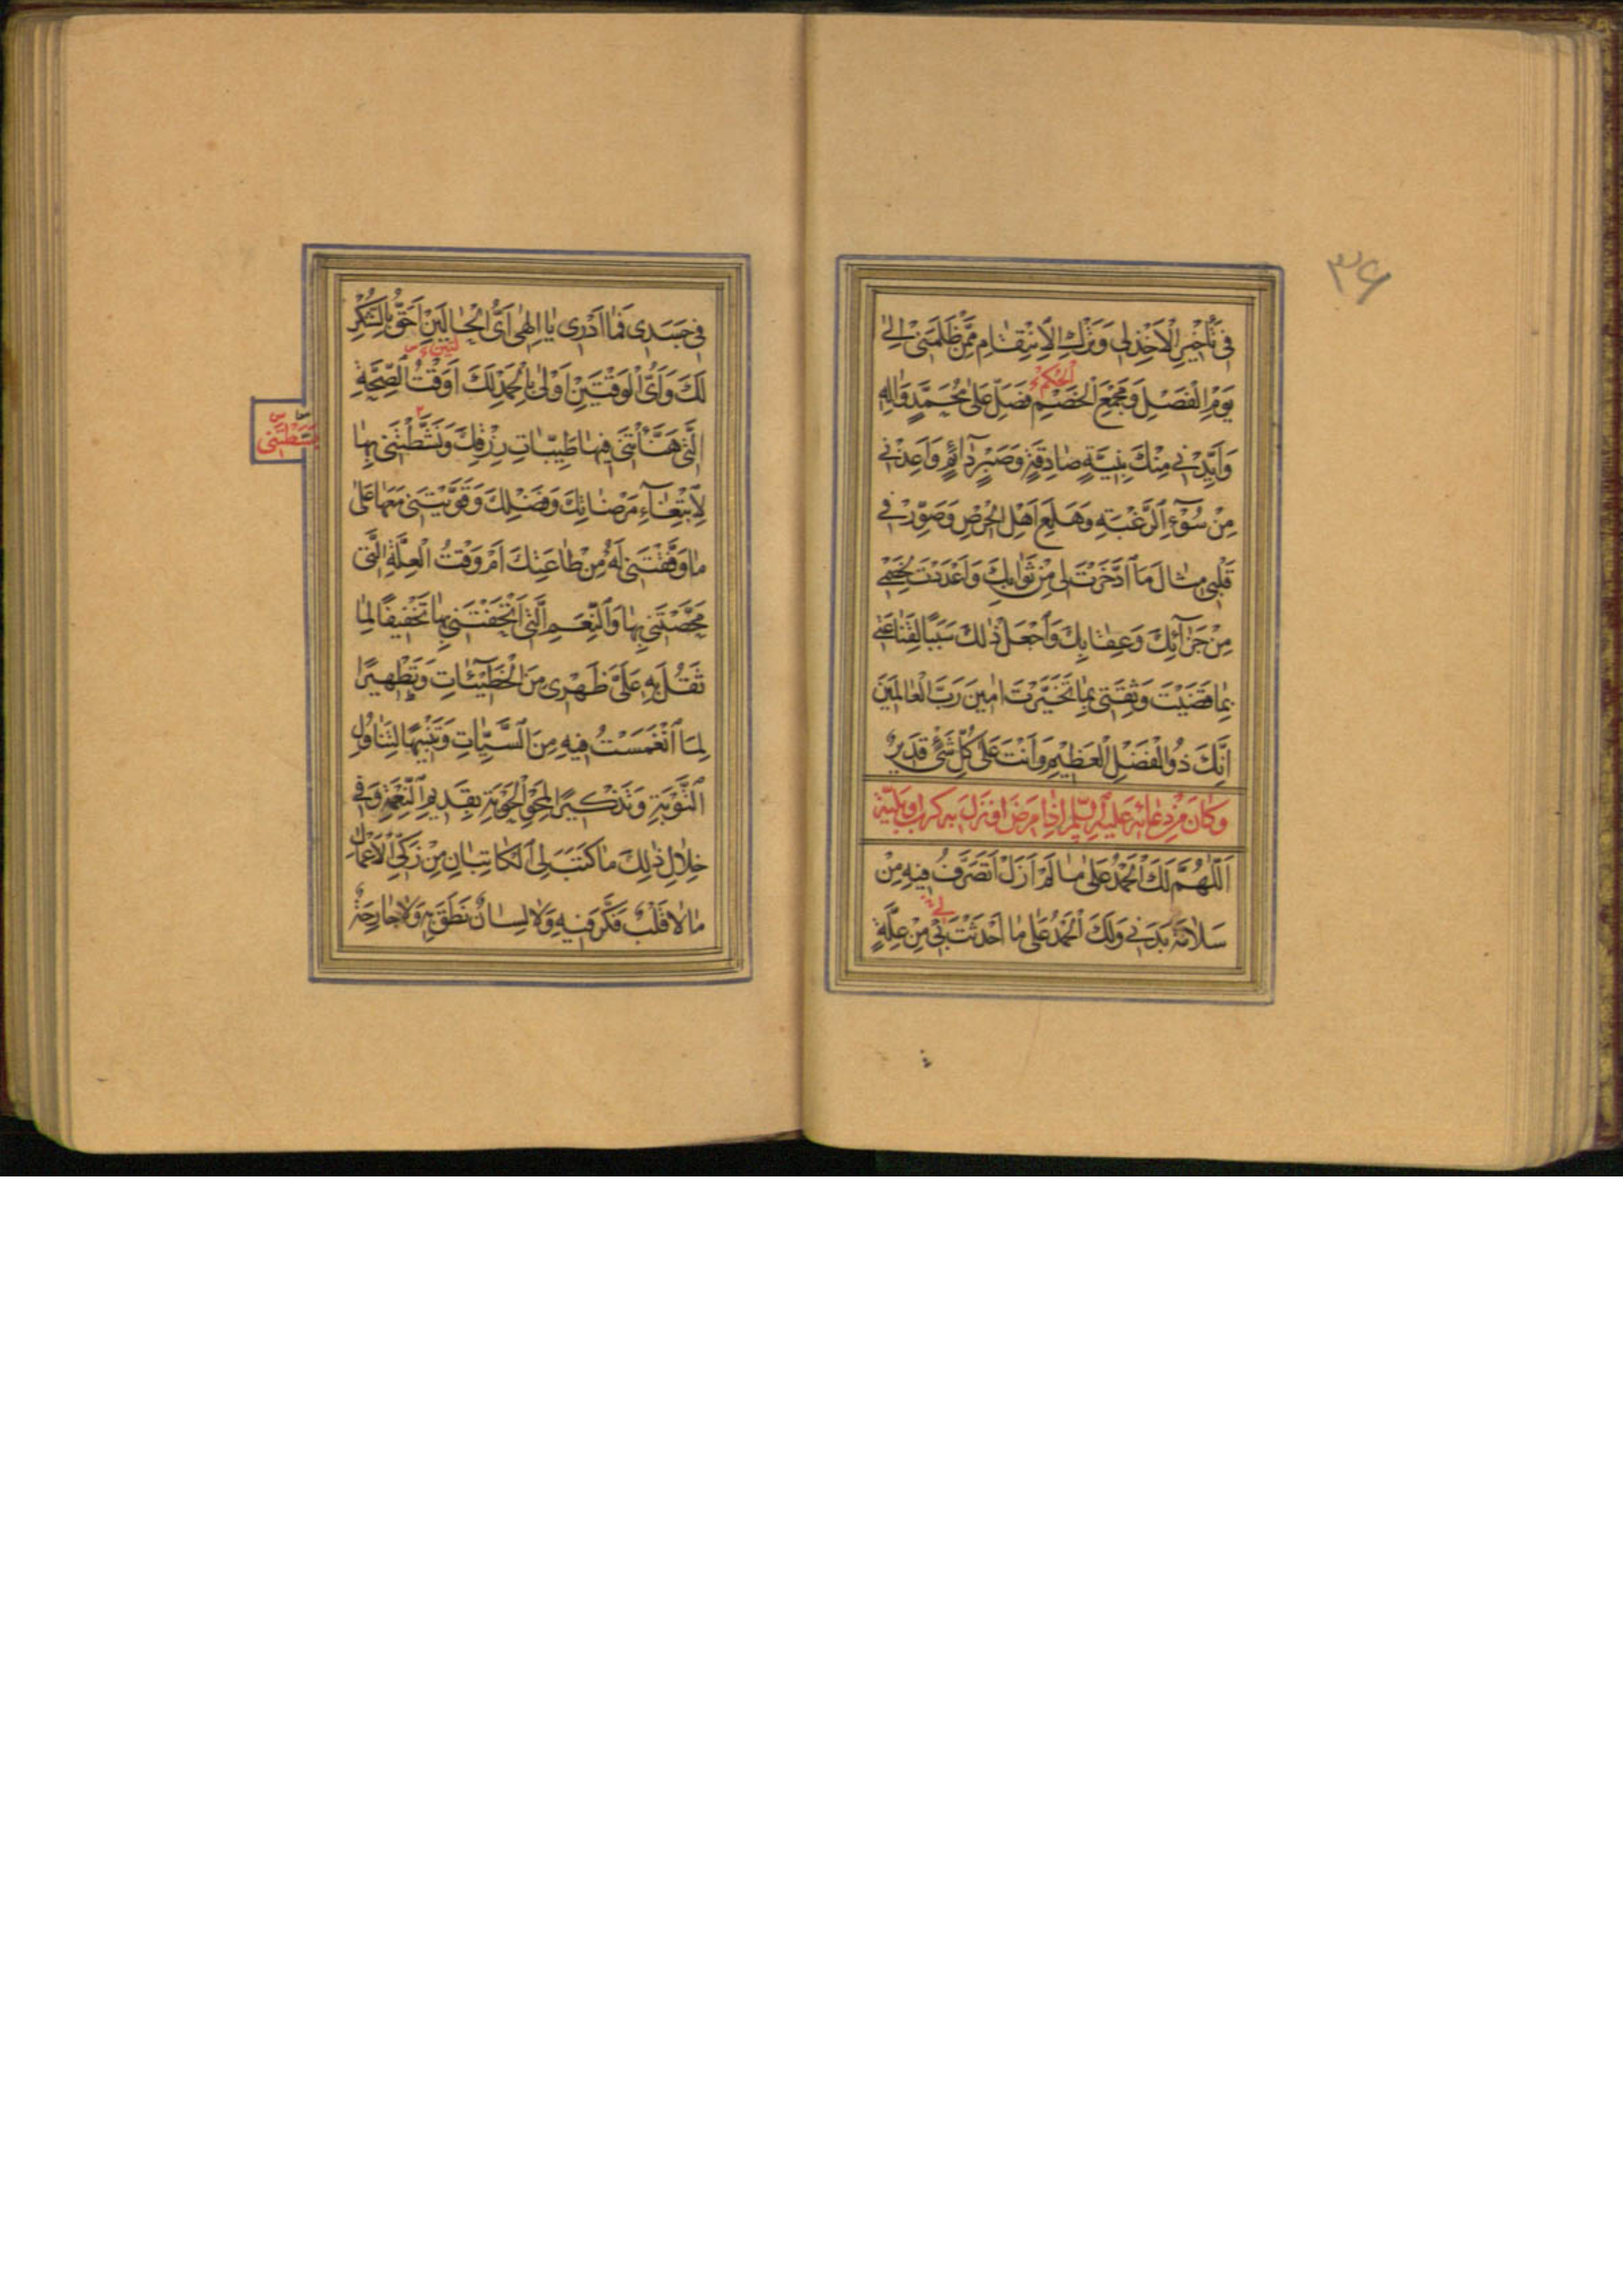 ۳۶
فِي تَأْخِيرِ الْاَخْذِ لِي وَتَرْكِ الْاِنْتِقَامِ مِمَّنْ ظَلَمَنِي اِلَى
الْحُكْمِ
يَوْمِ الْفَصْلِ وَمَجْمَعِ الْخَصْمِ فَصَلِّ عَلَى مُحَمَّدٍ وَاٰلِهِ
وَاَيِّدْنِي مِنْكَ بِنِيَّةٍ صَادِقَةٍ وَصَبْرٍ دَائِمٍ وَاَعِذْنِي
مِنْ سُوْءِ الرَّغْبَةِ وَهَلَعِ اَهْلِ الْحِرْصِ وَصَوِّرْ فِي
قَلْبِي مِثَالَ مَا ادَّخَرْتَ لِي مِنْ ثَوَابِكَ وَاَعْدَدْتَ لِخَصْمِي
مِنْ جَزَآئِكَ وَعِقَابِكَ وَاجْعَلْ ذٰلِكَ سَبَبًا لِقَنَاعَتِي
بِمَا قَضَيْتَ وَثِقَتِي بِمَا تَخَيَّرْتَ اٰمِينَ رَبَّ الْعَالَمِينَ
اِنَّكَ ذُو الْفَضْلِ الْعَظِيمِ وَاَنْتَ عَلَى كُلِّ شَيْءٍ قَدِيرٌ
وَكَانَ مِنْ دُعَائِهِ عَلَيْهِ السَّلَامُ اِذَا مَرِضَ اَوْ نَزَلَ بِهِ كَرْبٌ اَوْ بَلِيَّةٌ
اَللّٰهُمَّ لَكَ الْحَمْدُ عَلَى مَا لَمْ اَزَلْ اَتَصَرَّفُ فِيهِ مِنْ
لِي
سَلَامَةِ بَدَنِي وَلَكَ الْحَمْدُ عَلَى مَا اَحْدَثْتَ بِي مِنْ عِلَّةٍ
فِي جَسَدِي فَمَا اَدْرِي يَا اِلٰهِي اَيُّ الْحَالَيْنِ اَحَقُّ بِالشُّكْرِ
لَكَ وَاَيُّ الْوَقْتَيْنِ اَوْلَى بِالْحَمْدِ لَكَ اَوَقْتُ الصِّحَّةِ
الَّتِي هَنَّأْتَنِي فِيهَا طَيِّبَاتِ رِزْقِكَ وَنَشَّطْتَنِي بِهَا
لِابْتِغَآءِ مَرْضَاتِكَ وَفَضْلِكَ وَقَوَّيْتَنِي مَعَهَا عَلَى
مَا وَفَّقْتَنِي لَهُ مِنْ طَاعَتِكَ اَمْ وَقْتُ الْعِلَّةِ الَّتِي
مَحَّصْتَنِي بِهَا وَالنِّعَمِ الَّتِي اَتْحَفْتَنِي بِهَا تَخْفِيفًا لِمَا
ثَقُلَ بِهِ عَلَيَّ ظَهْرِي مِنَ الْخَطِيْئَاتِ وَتَطْهِيرًا
لِمَا انْغَمَسْتُ فِيهِ مِنَ السَّيِّئَاتِ وَتَنْبِيهًا لِتَنَاوُلِ
التَّوْبَةِ وَتَذْكِيرًا لِمَحْوِ الْحَوْبَةِ بِقَدِيمِ النِّعْمَةِ وَفِي
خِلَالِ ذٰلِكَ مَا كَتَبَ لِيَ الْكَاتِبَانِ مِنْ زَكِيِّ الْاَعْمَالِ
مَا لَا قَلْبٌ فَكَّرَ فِيهِ وَلَا لِسَانٌ نَطَقَ بِهِ وَلَا جَارِحَةٌ